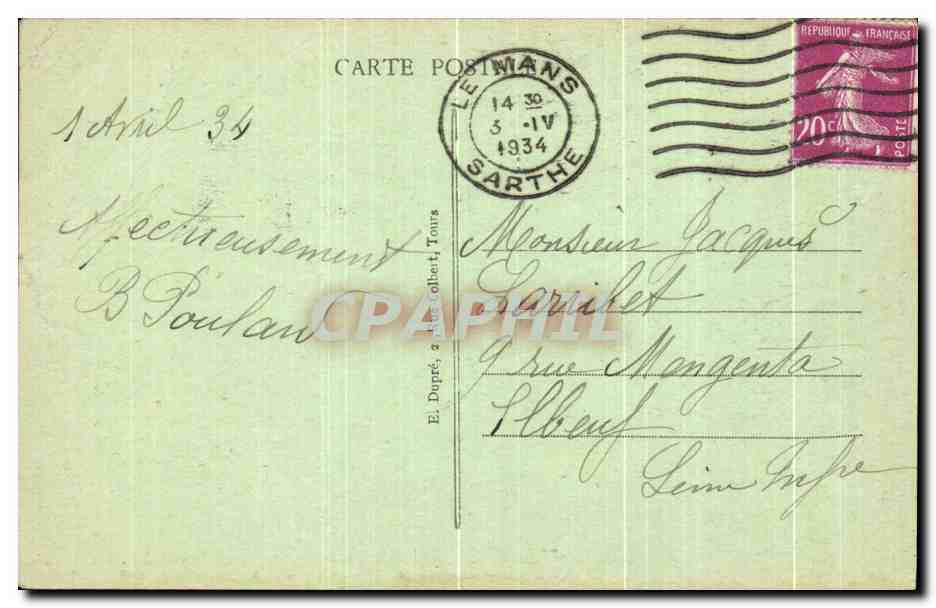 CARTE POSTALE
LE MANS
14 30
3 · IV
1934
SARTHE
REPUBLIQUE FRANÇAISE
20c
POSTE
1 Avril 34
Affectueusement
B Poulain
E. Dupré, 2, Rue Colbert, Tours
Monsieur Jacques
Larribet
9 rue Mangenta
Elbeuf
Seine Infre
CPAPHIL